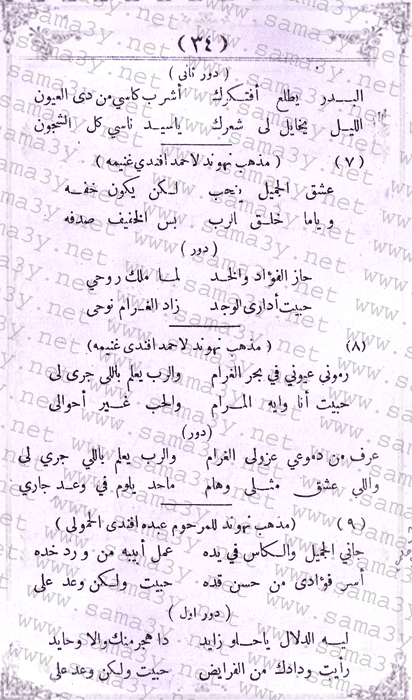 (٣٤)
(دور ثانى)
البـــدر يطلع أفتكرك أشرب كاسي من دى العيون
الليـل يخايل لى شعرك ياسيد ناسي كل الشجون
(٧) (مذهب نهوند لاحمد افندي غنيمه)
عشق الجميل يجب لكن يكون خفه
وياما خلق ارب بس الخفيف صدفه
(دور)
حاز الفؤاد والخد لما ملك روحي
حبيت أدارى الوجد زاد الغرام نوحى
(٨) (مذهب نهوند لاحمد افندى غنيمه)
رموني عيوني في بحر الغرام والرب يعلم باللى جرى لى
حبيت أنا وايه المرام والحب غير أحوالى
(دور)
عرف من دموعي عزولى الغرام والرب يعلم باللي جري لى
واللى عشق مثلى وهام ماحد يلوم في وعد جاري
(٩) (مذهب نهوند للمرحوم عبده افندى الحمولى)
جاني الجميل والكاس في يده عمل أبيه من ورد خده
أسر فؤادى من حسن قده حبيت ولكن وعد على
(دور اول)
ليه الدلال ياحلو زايد دا هجر منك والا وحايد
رأيت ودادك من الفرايض حبيت ولكن وعد على
www.sama3y.net